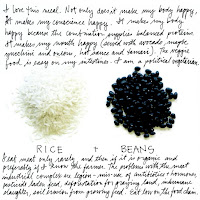 I love this meal. Not only does it make my body happy,
it makes my conscience happy. It makes my body
happy because the combination supplies balanced proteins
it makes my mouth happy (served with avocado, maybe
zucchini and onions, hot sauce and tamari). The veggie
food is easy on my intestines. I am a political vegetarian.
RICE + BEANS
I eat meat only rarely, and then if it is organic and
preferably if I know the farmer. The problems with the meat
industrial complex are legion - mis-use of antibiotics & hormones,
pesticide laden feed, deforestation for grazing land, inhumane
slaughter, soil erosion from growing feed. Eat low on the food chain.